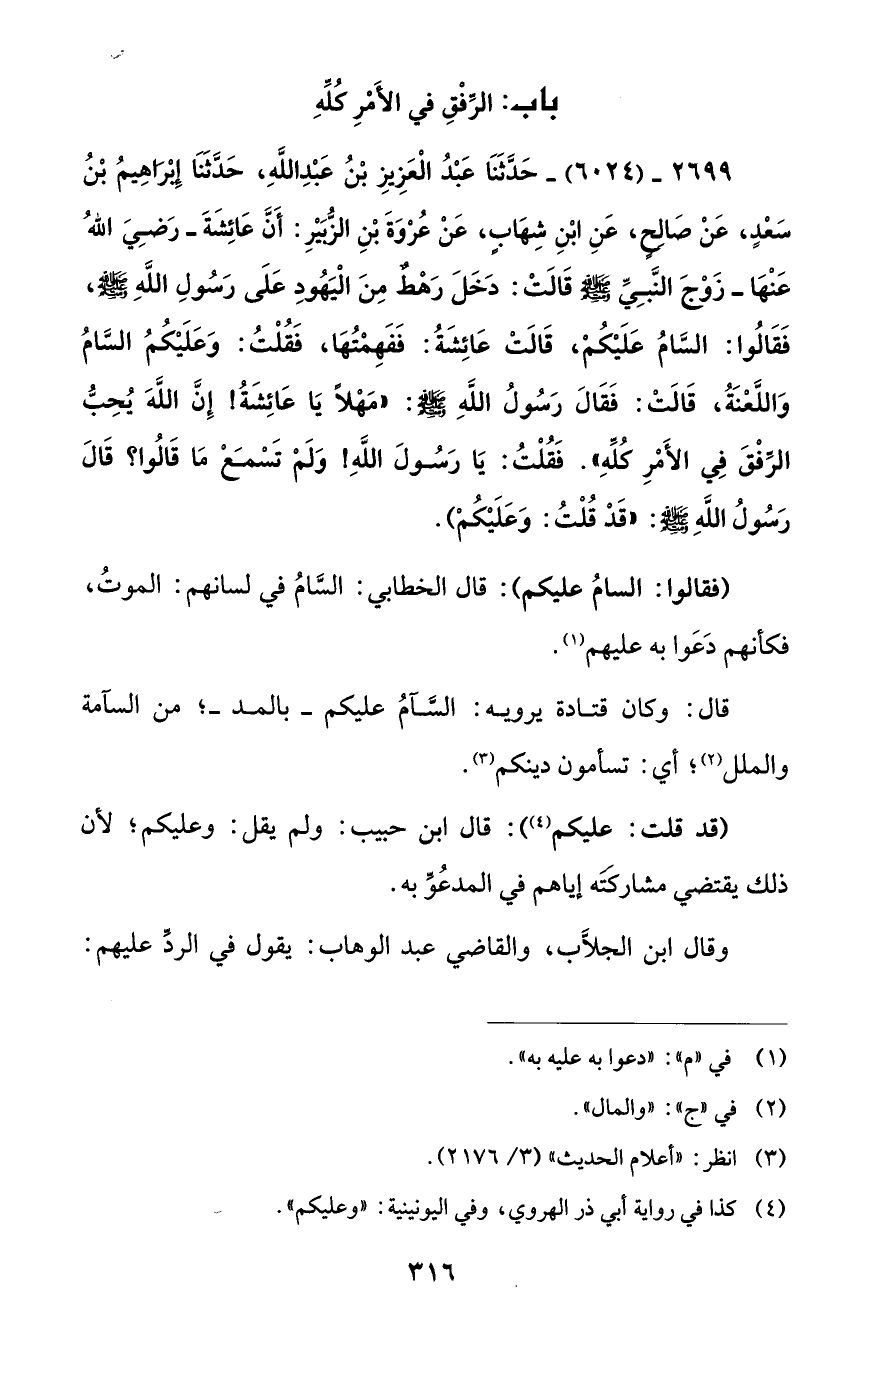 باب: الرِّفْقِ في الأَمْرِ كُلِّهِ
٢٦٩٩ - (٦٠٢٤) - حَدَّثَنَا عَبْدُ الْعَزِيزِ بْنُ عَبْدِاللَّهِ، حَدَّثَنَا إِبْرَاهِيمُ بْنُ
سَعْدٍ، عَنْ صَالِحٍ، عَنِ ابْنِ شِهَابٍ، عَنْ عُرْوَةَ بْنِ الزُّبَيْرِ: أَنَّ عَائِشَةَ - رَضِيَ اللهُ
عَنْهَا - زَوْجَ النَّبِيِّ ﷺ قَالَتْ: دَخَلَ رَهْطٌ مِنَ الْيَهُودِ عَلَى رَسُولِ اللَّهِ ﷺ،
فَقَالُوا: السَّامُ عَلَيْكُمْ، قَالَتْ عَائِشَةُ: فَفَهِمْتُهَا، فَقُلْتُ: وَعَلَيْكُمُ السَّامُ
وَاللَّعْنَةُ، قَالَتْ: فَقَالَ رَسُولُ اللَّهِ ﷺ: «مَهْلاً يَا عَائِشَةُ! إِنَّ اللَّهَ يُحِبُّ
الرِّفْقَ فِي الأَمْرِ كُلِّهِ». فَقُلْتُ: يَا رَسُولَ اللَّهِ! وَلَمْ تَسْمَعْ مَا قَالُوا؟ قَالَ
رَسُولُ اللَّهِ ﷺ: «قَدْ قُلْتُ: وَعَلَيْكُمْ).
(فقالوا: السامُ عليكم): قال الخطابي: السَّامُ في لسانهم: الموتُ،
فكأنهم دَعَوا به عليهم(١).
قال: وكان قتادة يرويه: السَّآمُ عليكم - بالمد -؛ من السآمة
والملل(٢)؛ أي: تسأمون دينكم(٣).
(قد قلت: عليكم(٤)): قال ابن حبيب: ولم يقل: وعليكم؛ لأن
ذلك يقتضي مشاركتَه إياهم في المدعُوِّ به.
وقال ابن الجلاَّب، والقاضي عبد الوهاب: يقول في الردِّ عليهم:
(١) في «م»: «دعوا به عليه به».
(٢) في «ج»: «والمال».
(٣) انظر: «أعلام الحديث» (٣/ ٢١٧٦).
(٤) كذا في رواية أبي ذر الهروي، وفي اليونينية: «وعليكم».
٣١٦